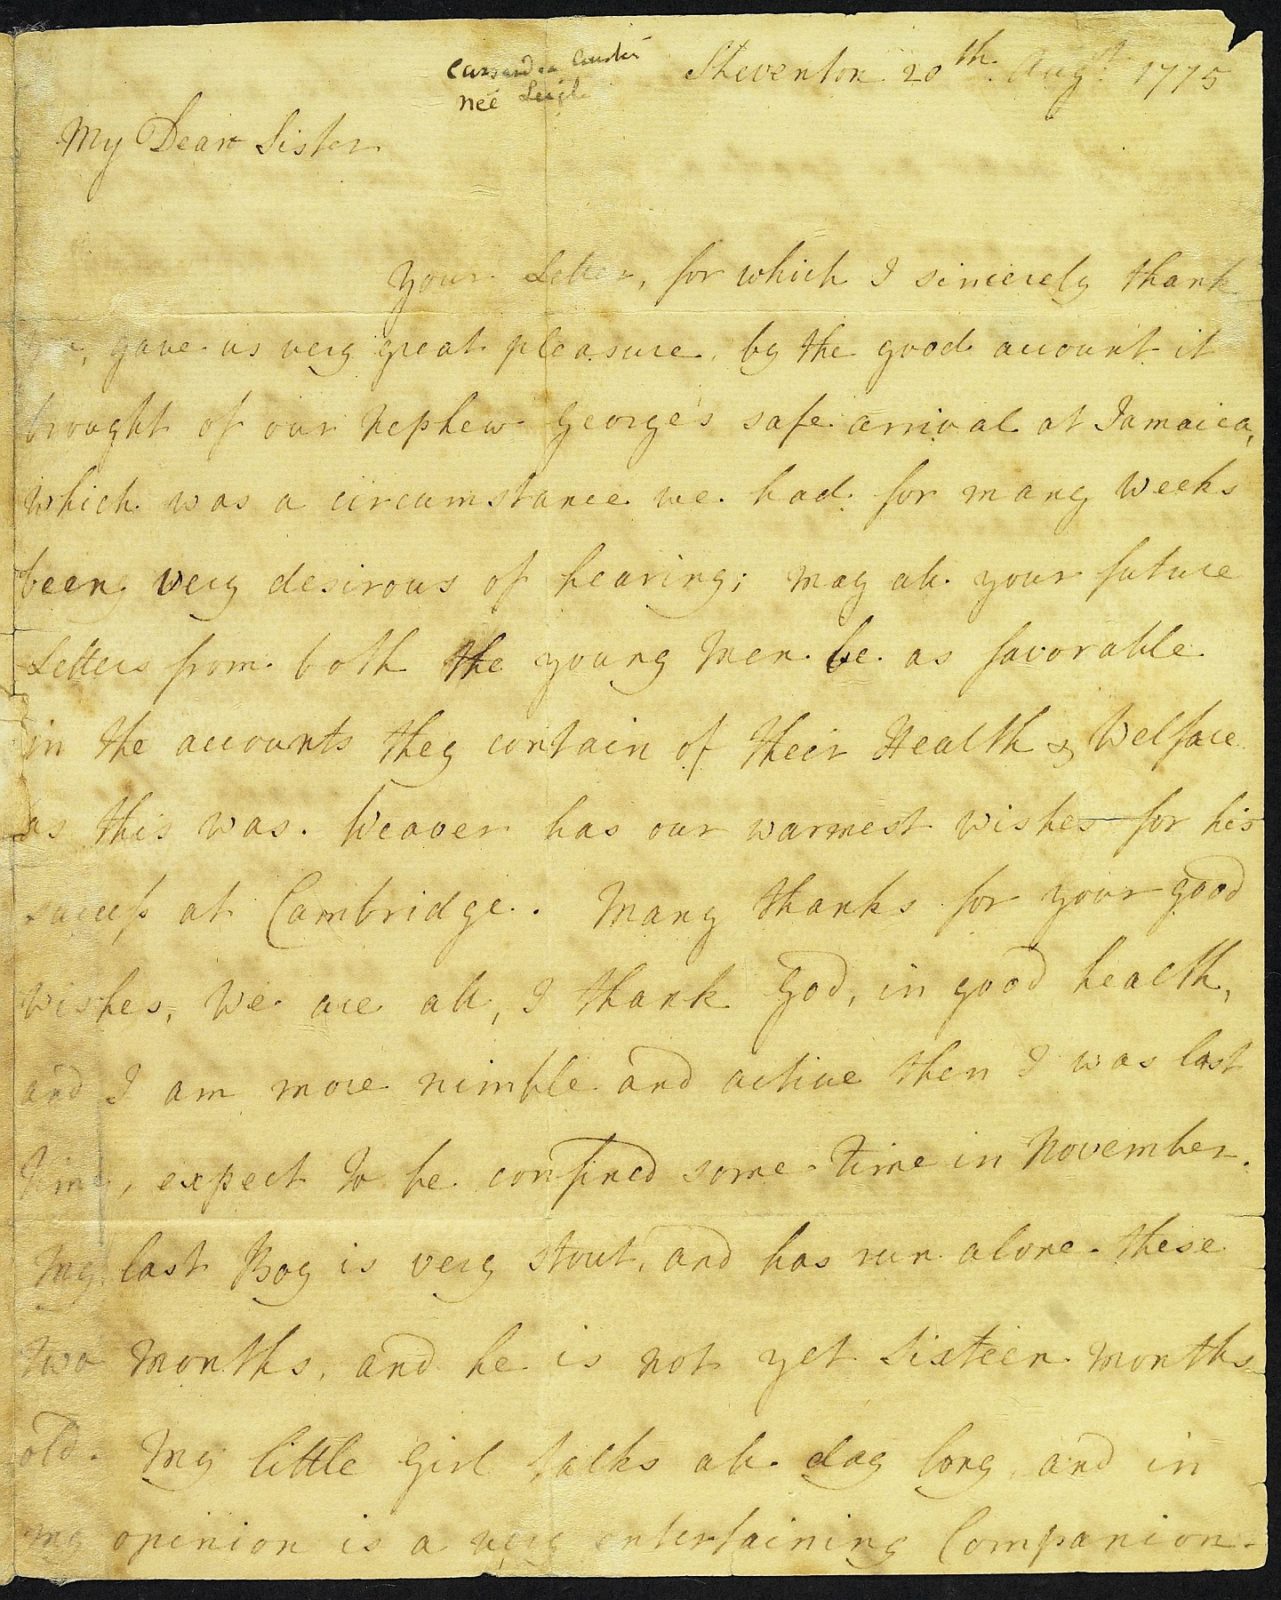 Cassandra Austen
neé Leigh
Steventon 20th Augst 1775
My Dear Sister
Your Letter, for which I sincerely thank
you, gave us very great pleasure, by the good account it
brought of our Nephew George's safe arrival at Jamaica,
which was a circumstance we had for many weeks
been very desirous of hearing; may all your future
Letters from both the young Men be as favorable
in the accounts they contain of their Health & Welfare
as this was. Weaver has our warmest wishes for his
success at Cambridge. Many thanks for your good
wishes, We are all, I thank God, in good health,
and I am more nimble and active then I was last
time, expect to be confined some time in November.
My last Boy is very stout, and has run alone these
two Months, and he is not yet Sixteen Months
old. My little Girl talks all day long, and in
my opinion is a very entertaining Companion.